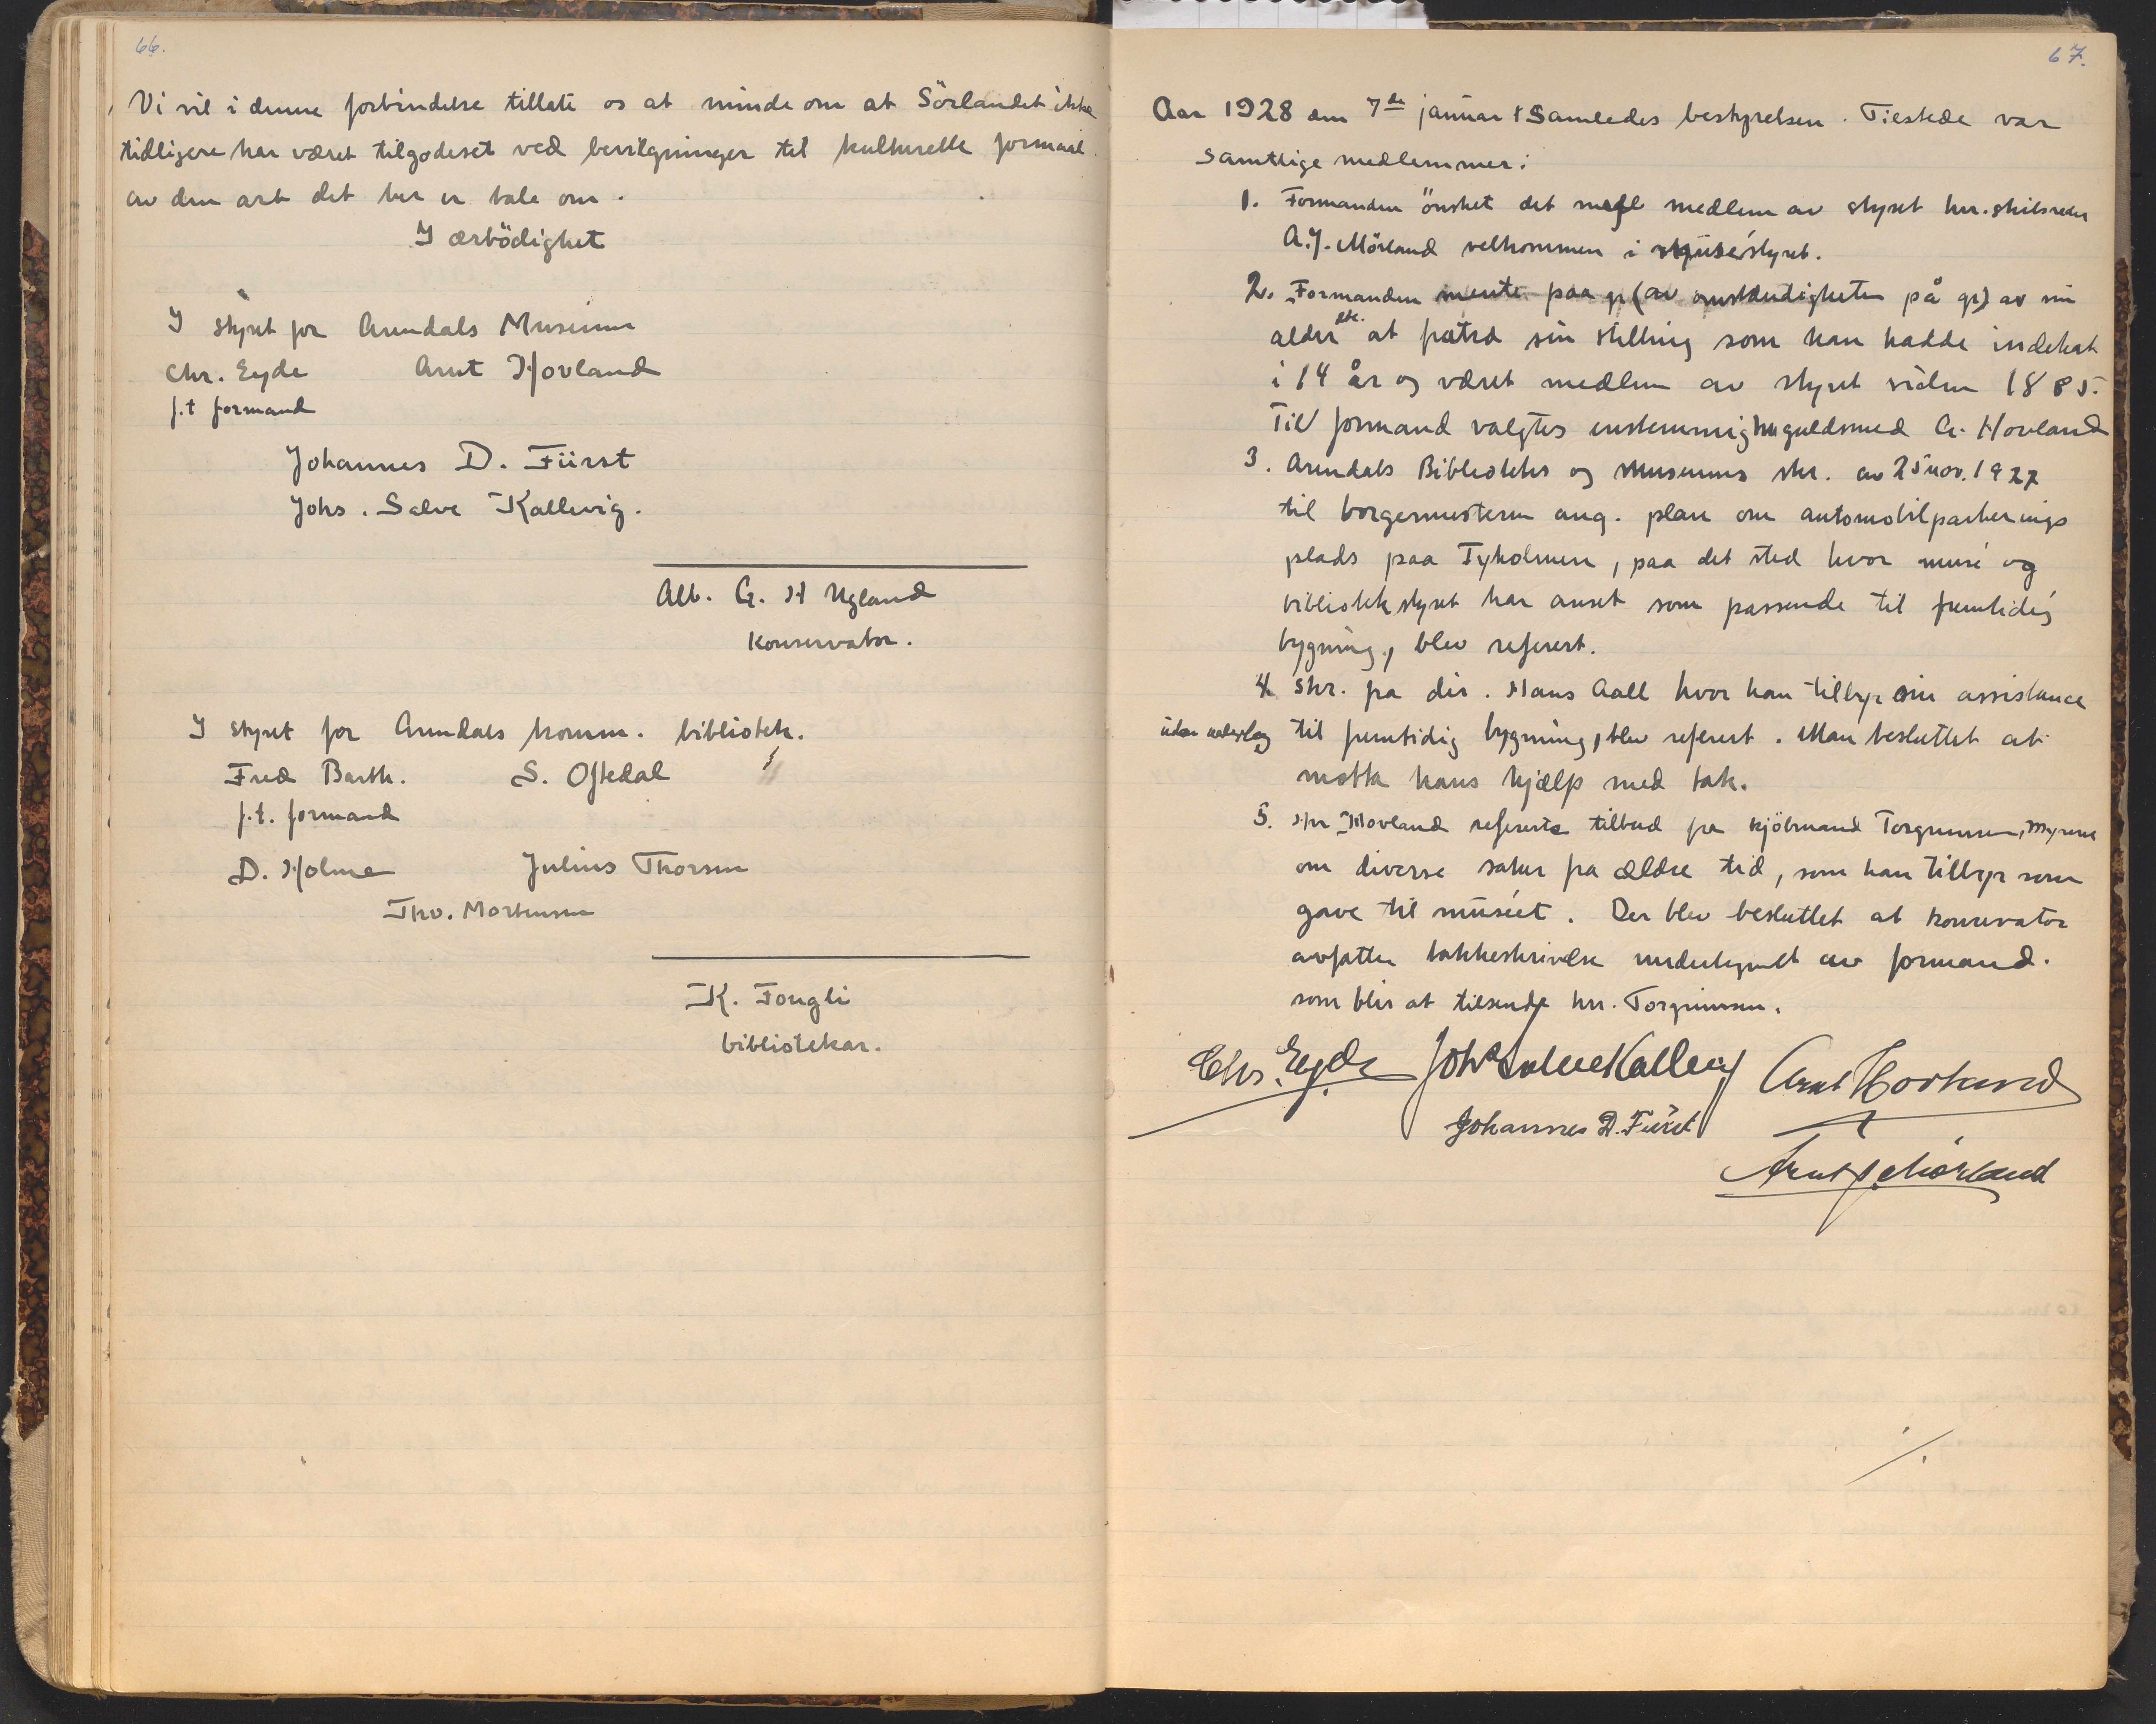 66.
Vi vil i denne forbindelse tillate os at minde om at Sörlandet ikke
tidligere har været tilgodeset ved bevilgninger til kulturelle formaal
av den art det her er tale om.
I ærbödighet
I styret for Arendals Museum
Chr. Eyde Arnt Hovland
f.t formand
Johannes D. Fürst
Johs. Salve Kallevig.
Alb. G. H Ugland
Konservator.
I styret for Arendals komm. bibliotek.
Fred Barth. S. Oftedal
f.t. formand
D. Holme Julius Thorsen
Thv. Mortensen
K. Fongli
bibliotekar.
67.
Aar 1928 den 7de januar samledes bestyrelsen. Tilstede var
samtlige medlemmer:
1. Formanden önsket det medlem av styret hr. skibsreder
A. J. Mörland velkommen i muséstyret.
2. Formanden mente paa gr (av omstændigheter på gr) av sin
alder etc. at fratræ sin stilling som han hadde indehat
i 14 år og været medlem av styret siden 1885.
Til formand valgtes enstemmig hr guldsmed A. Hovland
3. Arendals Biblioteks og Museums skr. av 25 nov. 1927
til borgermesteren ang. plan om automobilparkerings
plads paa Tyholmen, paa det sted hvor musé og
bibliotekstyret har anset som passende til fremtidig
bygning, blev referert.
4 Skr. fra dir. Hans Aall hvor han tilbyr sin assistance
uten vederlag til fremtidig bygning, blev referert. Man besluttet at
motta hans hjælp med tak.
5. Hr Hovland refererte tilbud fra kjöbmand Torgrimsen, Myrene
om diverse saker fra ældre tid, som han tilbyr som
gave til muséet. Der blev besluttet at konservator
avfatter takkeskrivelse undertegnet av formand.
som blir at tilsende hr. Torgrimsen.
Chr. Eyde Johs Salve Kallevig Arnt Hovland
Johannes D. Fürst
Arnt J. Mörland